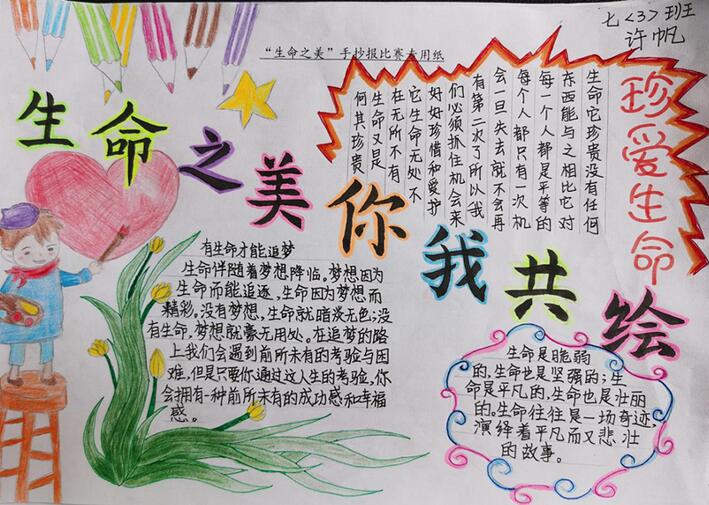 七<3>班
许帆
“生命之美”手抄报比赛专用纸
生命之美你我共绘
珍爱生命
生命它珍贵没有任何
东西能与之相比它对
每一个人都是平等的
每个人都只有一次机
会一旦失去就不会再
有第二次了所以我
们必须抓住机会来
好好珍惜和爱护
它生命无处不
在无所不有
生命又是
何其珍贵
有生命才能追梦
生命伴随着梦想降临。梦想因为
生命而能追逐,生命因为梦想而
精彩。没有梦想,生命就暗淡无色;没
有生命,梦想就豪无用处。在追梦的路
上我们会遇到前所未有的考验与困
难,但是只要你通过这人生的考验,你
会拥有一种前所未有的成功感和幸福
感。
生命是脆弱
的,生命也是坚强的;生
命是平凡的,生命也是壮丽
的。生命往往是一场奇迹,
演绎着平凡而又悲壮
的故事。